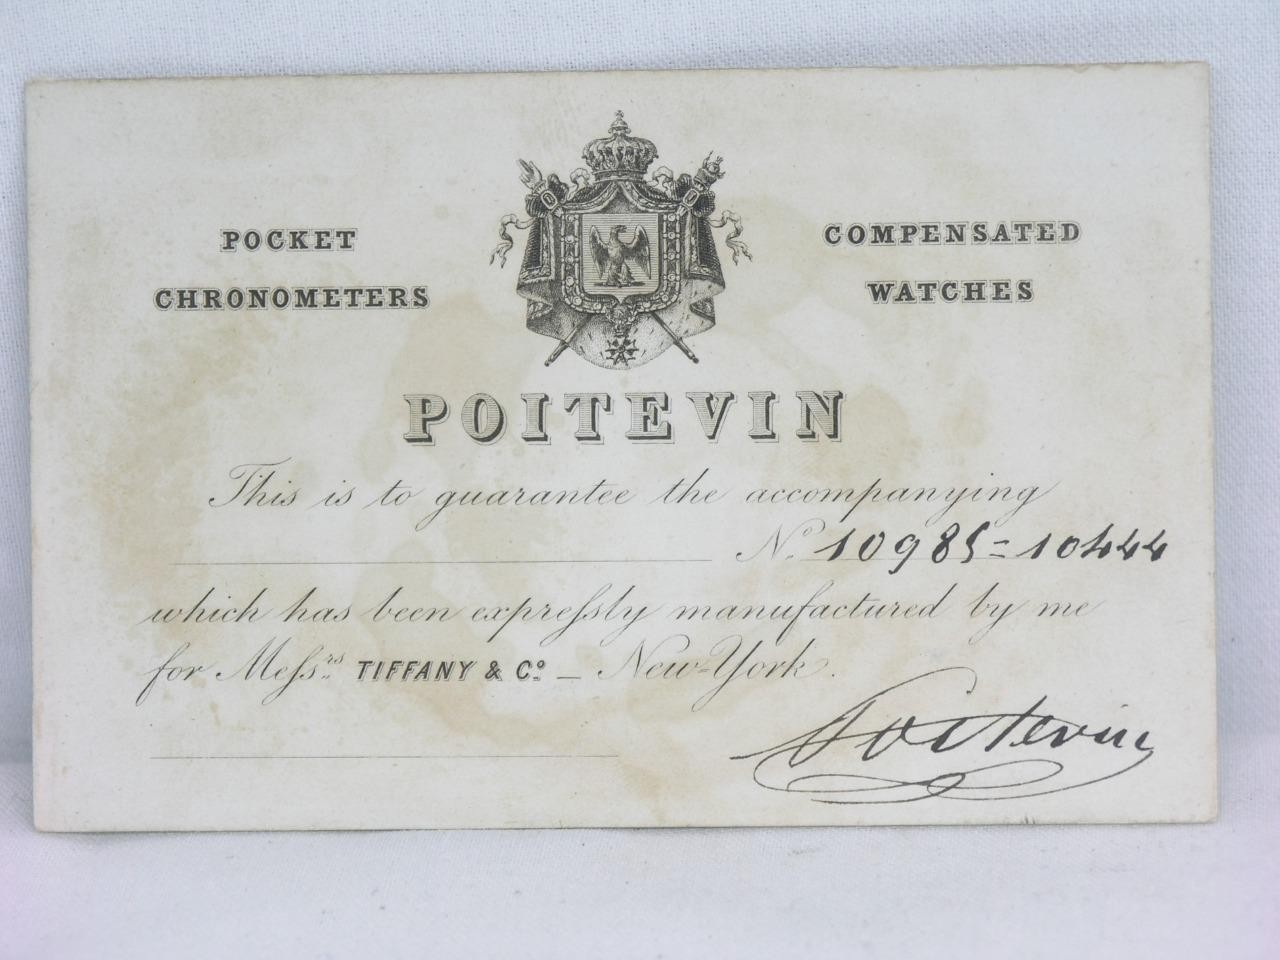 POCKET
CHRONOMETERS
COMPENSATED
WATCHES
POITEVIN
This is to guarantee the accompanying
No. 10985=10444
which has been expreſsly manufactured by me
for Meſsrs. TIFFANY & Co. – New-York.
Poitevin